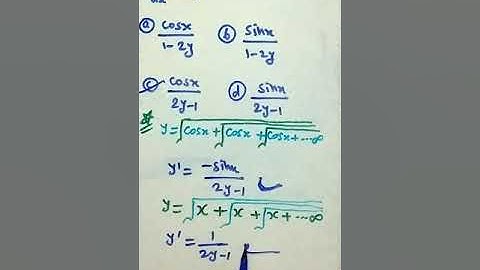 dx
ⓐ cosx/1-2y ⓑ sinx/1-2y
ⓒ cosx/2y-1 ⓓ sinx/2y-1
y=√cosx+√cosx+√cosx+---∞
y'= -sinx/2y-1
y=√x+√x+√x+---∞
y'= 1/2y-1